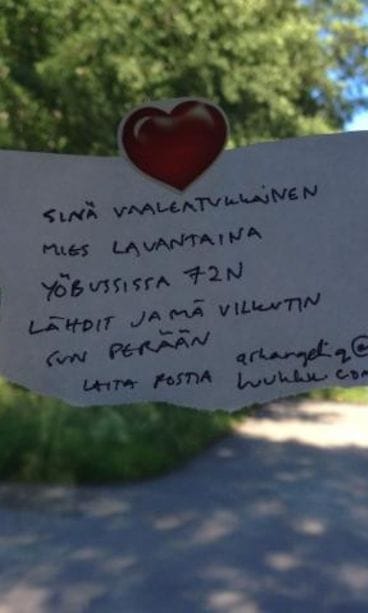 SINÄ VAALEATUKKAINEN
MIES LAVANTAINA
YÖBUSSISSA 72N
LÄHDIT JA MÄ VILKUTIN
SUN PERÄÄN
LAITA POSTIA